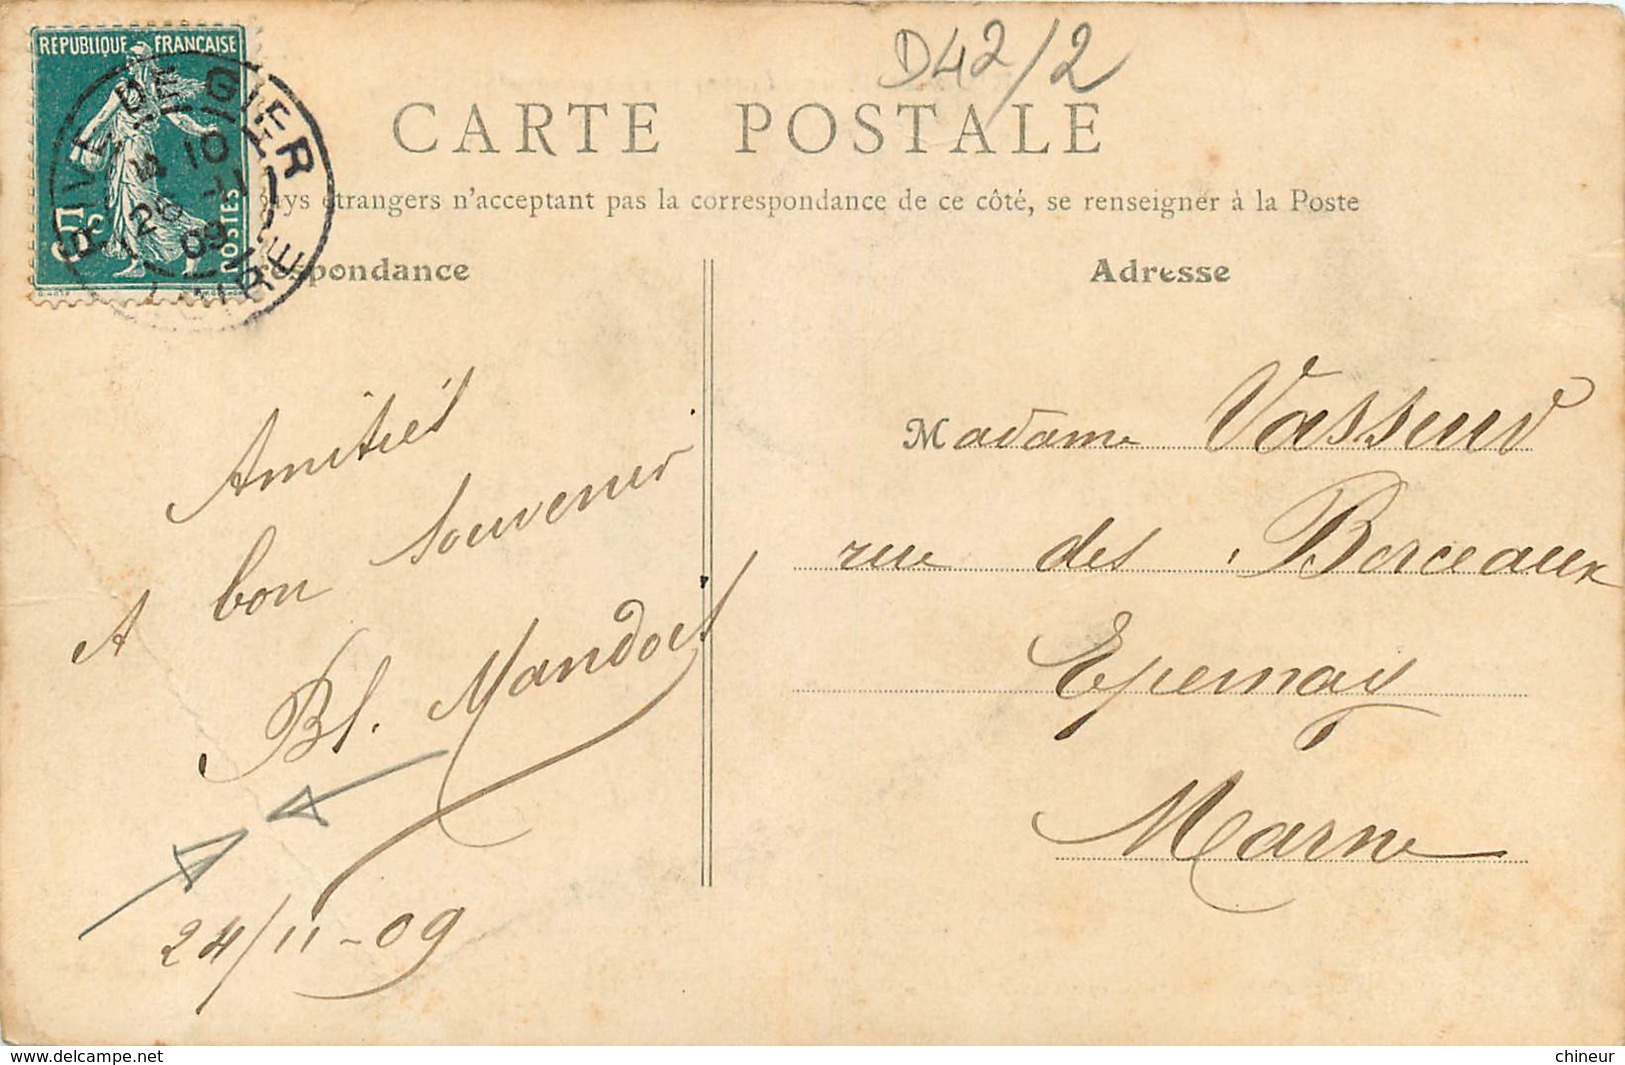 D42/2
RÉPUBLIQUE FRANÇAISE
5
POSTES
RIVE DE GIER
LOIRE
CARTE POSTALE
étrangers n'acceptant pas la correspondance de ce côté, se renseigner à la Poste
respondance
Adresse
Amitiés
bon souvenir
A
Bl.
24/11-09
Madame Vasseur
rue des Berceaux
Epernay
Marne
www.delcampe.net
chineur